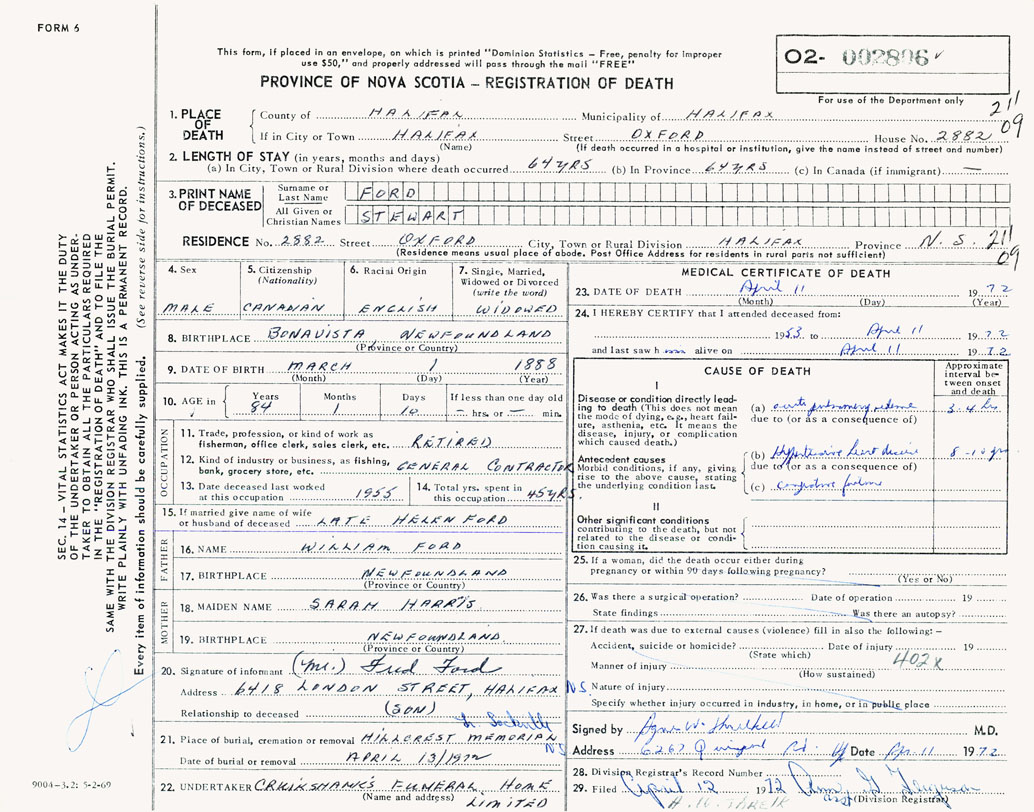 FORM 6
This form, if placed in an envelope, on which is printed "Dominion Statistics – Free, penalty for improper
use $50," and properly addressed will pass through the mail "FREE"
PROVINCE OF NOVA SCOTIA – REGISTRATION OF DEATH
O2- 002806
For use of the Department only
211
09
1. PLACE OF DEATH
County of HALIFAX Municipality of HALIFAX
If in City or Town HALIFAX Street OXFORD House No. 2882
(Name) (If death occurred in a hospital or institution, give the name instead of street and number)
2. LENGTH OF STAY (in years, months and days)
(a) In City, Town or Rural Division where death occurred 64 YRS (b) In Province 64 YRS (c) In Canada (if immigrant) —
3. PRINT NAME OF DECEASED
Surname or Last Name FORD
All Given or Christian Names STEWART
RESIDENCE No. 2882 Street OXFORD City, Town or Rural Division HALIFAX Province N.S. 211
09
(Residence means usual place of abode. Post Office Address for residents in rural parts not sufficient)
4. Sex
MALE
5. Citizenship (Nationality)
CANADIAN
6. Racial Origin
ENGLISH
7. Single, Married, Widowed or Divorced (write the word)
WIDOWED
8. BIRTHPLACE BONAVISTA NEWFOUNDLAND
(Province or Country)
9. DATE OF BIRTH MARCH 1 1888
(Month) (Day) (Year)
10. AGE in Years Months Days If less than one day
84 1 10 – hrs. or – min.
OCCUPATION
11. Trade, profession, or kind of work as
fisherman, office clerk, sales clerk, etc. RETIRED
12. Kind of industry or business, as fishing,
bank, grocery store, etc. GENERAL CONTRACTOR
13. Date deceased last worked
at this occupation 1955
14. Total yrs. spent in
this occupation 45 YRS.
15. If married give name of wife
or husband of deceased LATE HELEN FORD
FATHER
16. NAME WILLIAM FORD
17. BIRTHPLACE NEWFOUNDLAND
(Province or Country)
MOTHER
18. MAIDEN NAME SARAH HARRIS
19. BIRTHPLACE NEWFOUNDLAND.
(Province or Country)
20. Signature of informant (Mr.) Fred Ford
Address 6418 LONDON STREET, HALIFAX N.S.
Relationship to deceased (SON)
21. Place of burial, cremation or removal HILLCREST MEMORIAL
Date of burial or removal APRIL 13/1972
22. UNDERTAKER CRUIKSHANK'S FUNERAL HOME
(Name and address) LIMITED
MEDICAL CERTIFICATE OF DEATH
23. DATE OF DEATH April 11 1972
(Month) (Day) (Year)
24. I HEREBY CERTIFY that I attended deceased from:
1953 to April 11 1972
and last saw h alive on April 11 1972
CAUSE OF DEATH
Approximate interval between onset and death
I
Disease or condition directly leading to death (This does not mean the mode of dying, e.g., heart failure, asthenia, etc. It means the disease, injury, or complication which caused death.)
(a) acute pulmonary edema 3-4 hrs
due to (or as a consequence of)
Antecedent causes
Morbid conditions, if any, giving rise to the above cause, stating the underlying condition last.
(b) Hypertensive heart disease 8-10 yrs
due to (or as a consequence of)
(c) congestive failure
II
Other significant conditions
contributing to the death, but not
related to the disease or condition causing it.
25. If a woman, did the death occur either during
pregnancy or within 90 days following pregnancy?
(Yes or No)
26. Was there a surgical operation? Date of operation 19
State findings Was there an autopsy?
27. If death was due to external causes (violence) fill in also the following:–
Accident, suicide or homicide? Date of injury 19
(State which) 402X
Manner of injury
(How sustained)
Nature of injury
Specify whether injury occurred in industry, in home, or in public place
Signed by M.D.
Address 6267 Quinpool Rd. Date Apr. 11 1972
28. Division Registrar's Record Number
29. Filed April 12 1972
(Division Registrar)
SEC. 14 – VITAL STATISTICS ACT MAKES IT THE DUTY
OF THE UNDERTAKER OR PERSON ACTING AS UNDER-
TAKER TO OBTAIN ALL THE PARTICULARS REQUIRED
IN THE "REGISTRATION OF DEATH" AND TO FILE THE
SAME WITH THE DIVISION REGISTRAR WHO SHALL ISSUE THE BURIAL PERMIT.
WRITE PLAINLY WITH UNFADING INK. THIS IS A PERMANENT RECORD.
Every item of information should be carefully supplied. (See reverse side for instructions.)
9004-3.2: 5-2-69